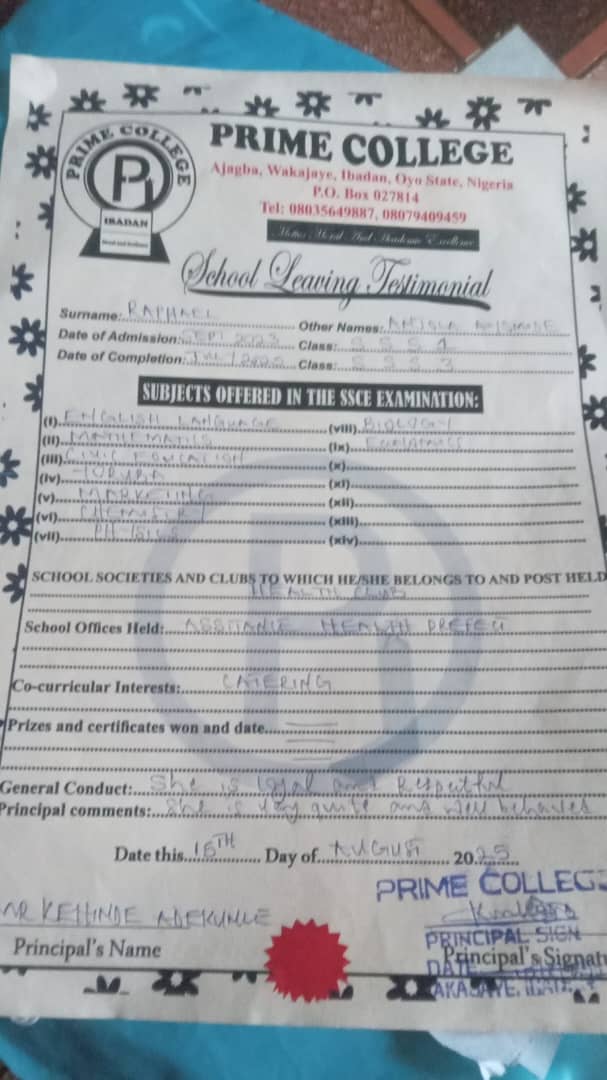 PRIME COLLEGE
IBADAN
PRIME COLLEGE
Ajagba, Wakajaye, Ibadan, Oyo State, Nigeria
P.O. Box 027814
Tel: 08035649887, 08079409459
School Leaving Testimonial
Surname: RAPHAEL Other Names:
Date of Admission: SEPT 2023 Class: S S S 1
Date of Completion: Class: S S S 3
SUBJECTS OFFERED IN THE SSCE EXAMINATION:
(i) ENGLISH LANGUAGE (viii) BIOLOGY
(ii) MATHEMATICS (ix) ECONOMICS
(iii) CIVIC EDUCATION (x)
(iv) YORUBA (xi)
(v) MARKETING (xii)
(vi) CHEMISTRY (xiii)
(vii) (xiv)
SCHOOL SOCIETIES AND CLUBS TO WHICH HE/SHE BELONGS TO AND POST HELD
HEALTH CLUB
School Offices Held: HEALTH PREFECT
Co-curricular Interests: CATERING
Prizes and certificates won and date
General Conduct: She is loyal and
Principal comments: She is very quite and well behaved
Date this 15TH Day of AUGUST 2025
PRIME COLLEGE
MR KEHINDE ADEKUNLE
PRINCIPAL SIGN
Principal's Name Principal's Signatu
DATE